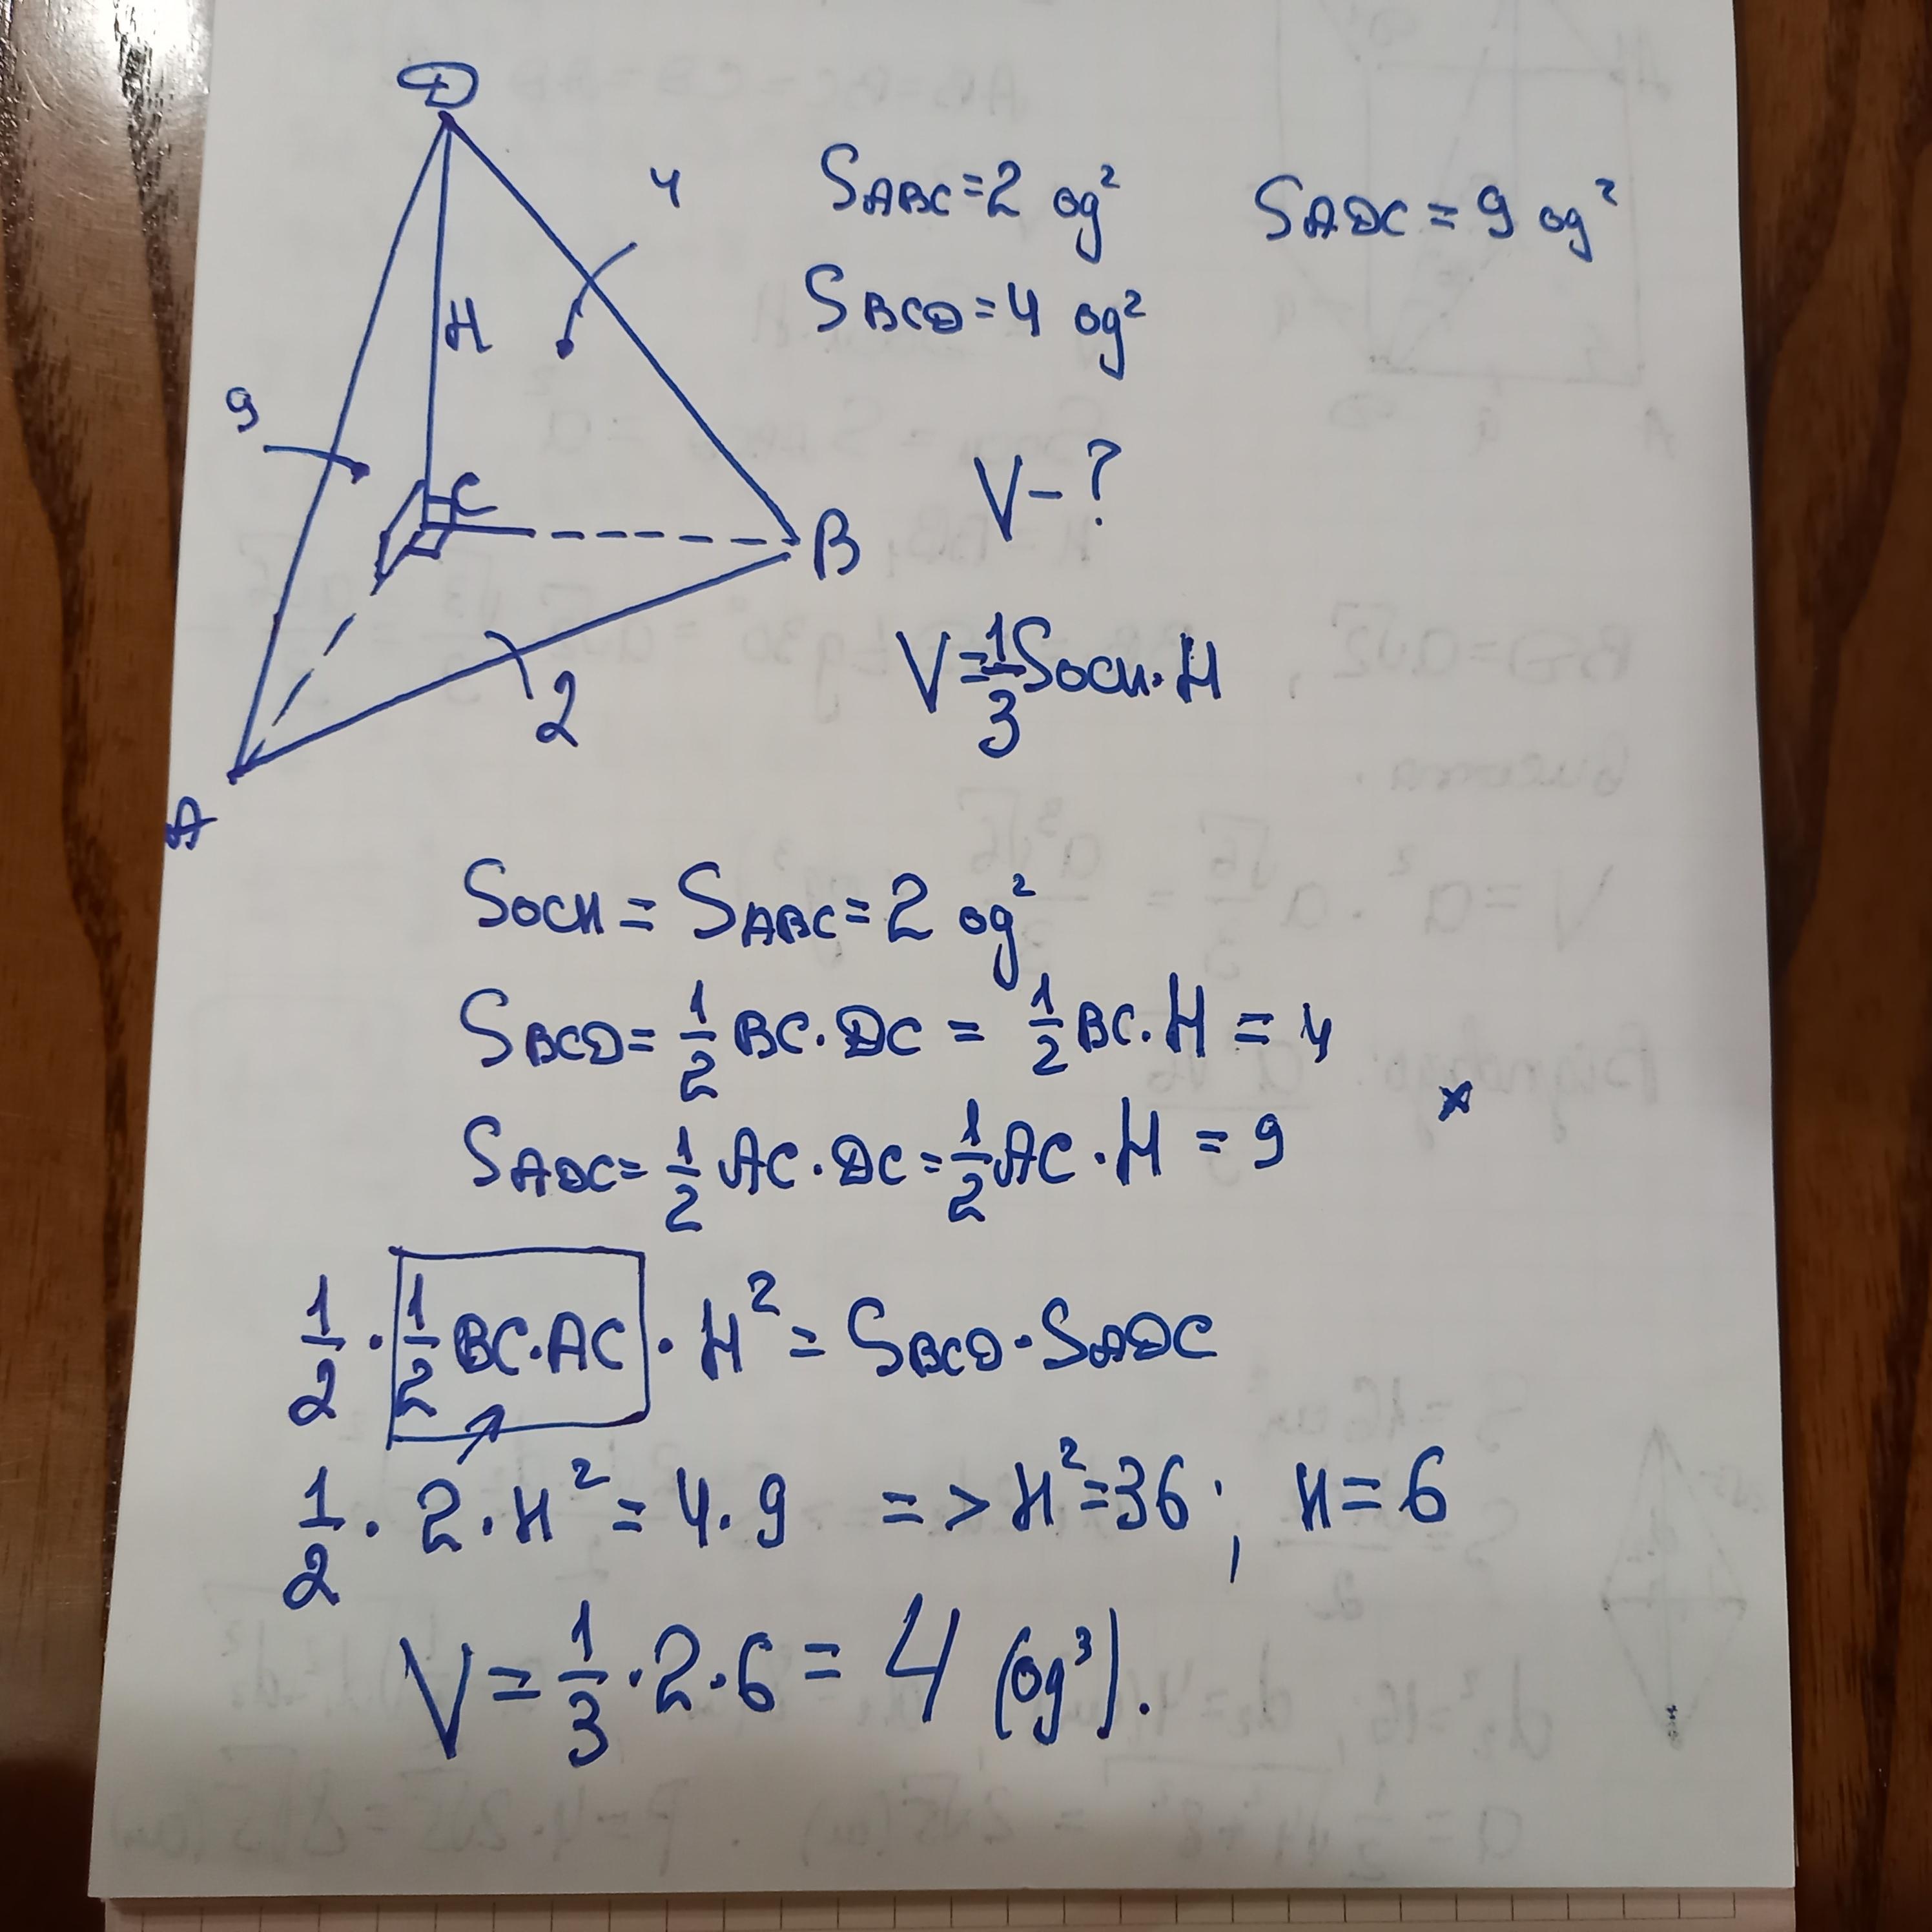 D
4
S_ABC = 2 од²
S_ADC = 9 од²
S_BCD = 4 од²
H
9
C
V - ?
B
V = 1/3 Sосн · H
2
A
Sосн = S_ABC = 2 од²
S_BCD = 1/2 BC · DC = 1/2 BC · H = 4
×
S_ADC = 1/2 AC · DC = 1/2 AC · H = 9
1/2 · 1/2 BC · AC · H² = S_BCD · S_ADC
1/2 · 2 · H² = 4 · 9 => H² = 36 ; H = 6
V = 1/3 · 2 · 6 = 4 (од³).